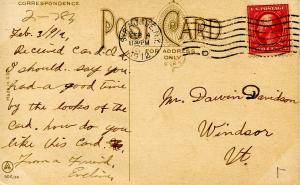 CORRESPONDENCE
POST CARD
FOR ADDRESS ONLY
Feb. 3/1912,
Received Card.
I should say you
had a good time
by the lookes of the
card. how do you
like this card.
From a friend,
Eveline.
Mr. Darwin Davidson
Windsor
Vt.